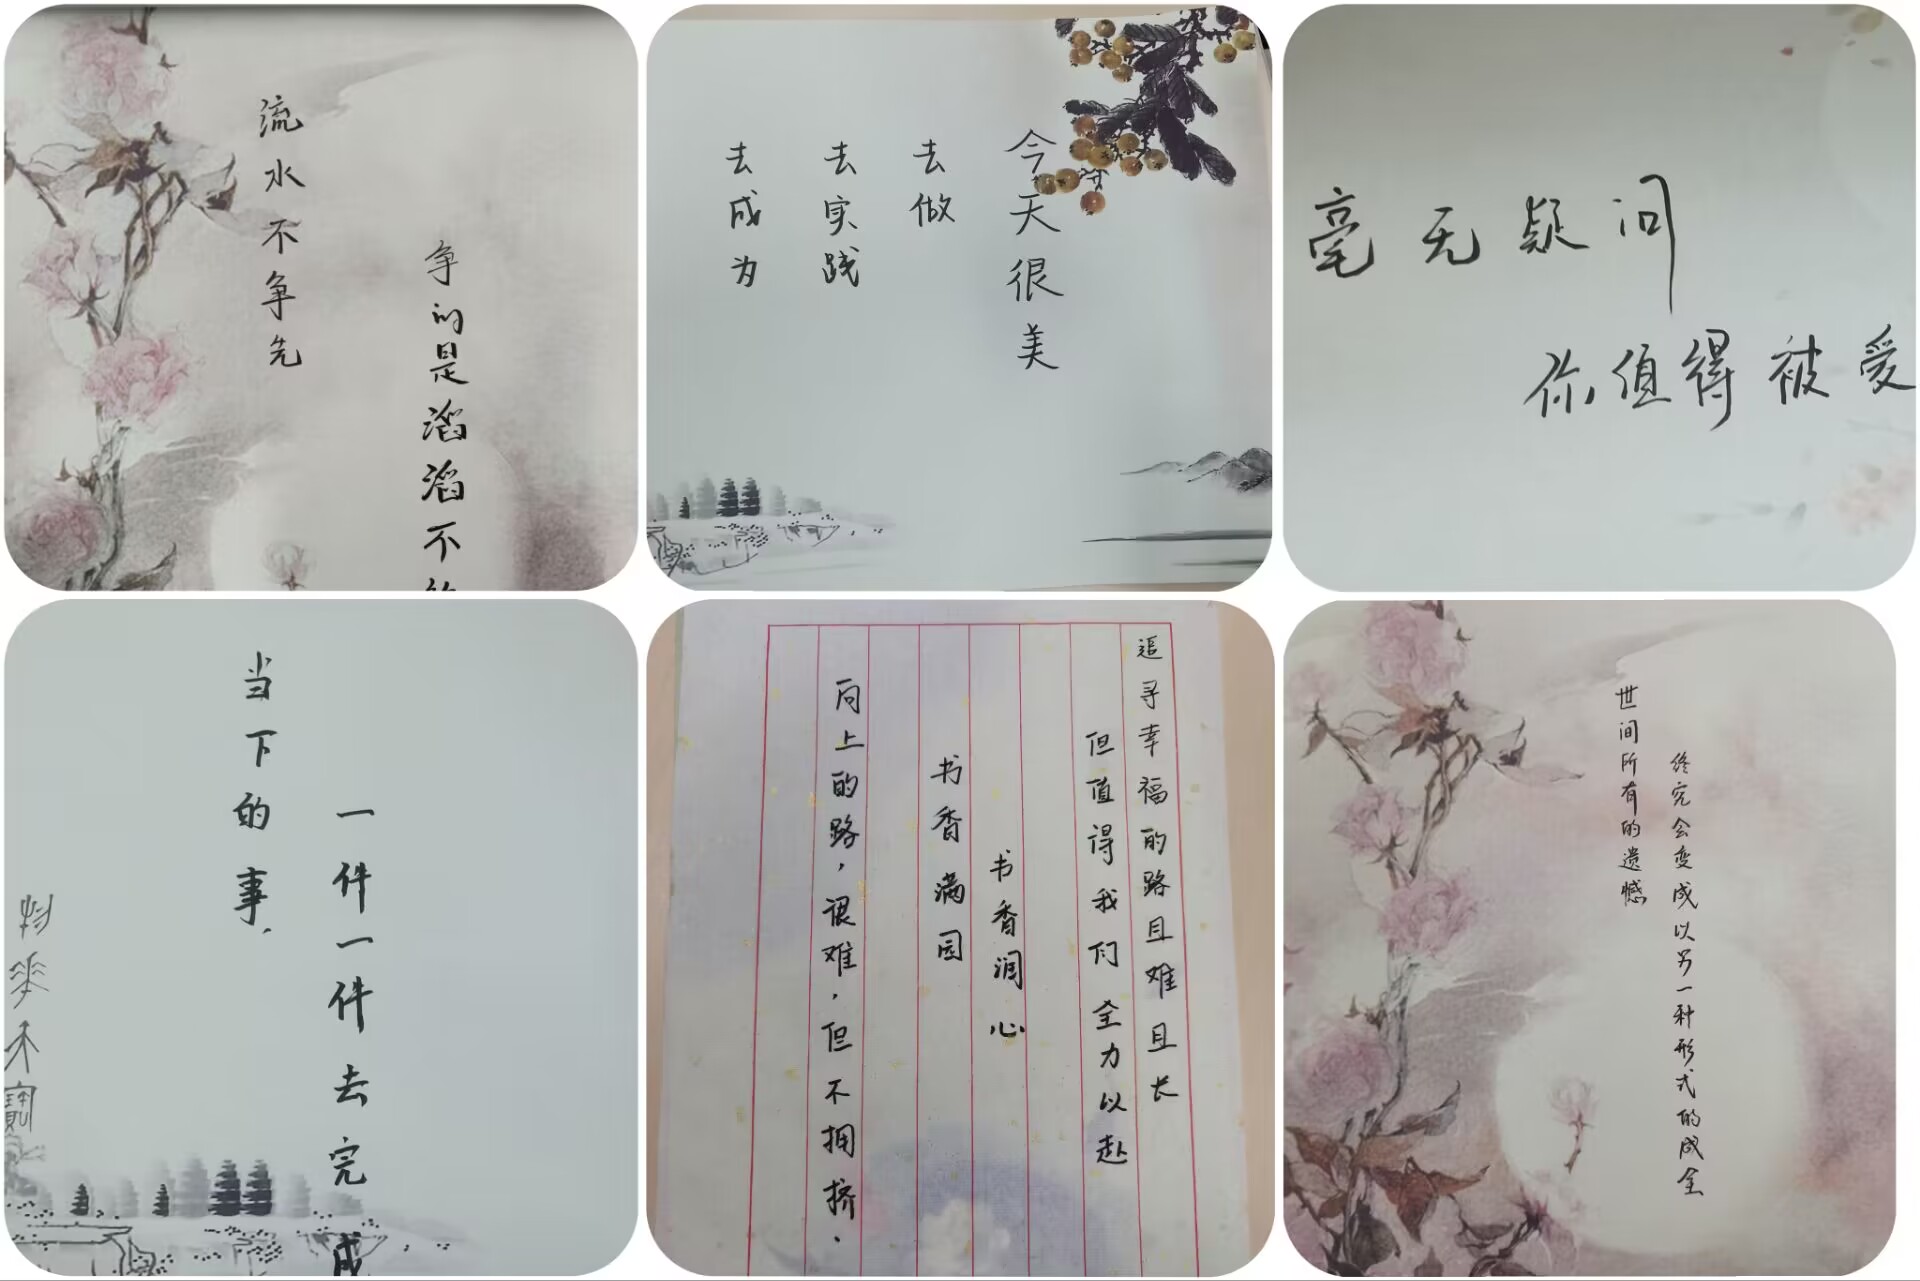 流水不争先
争的是滔滔不
今天很美
去做
去实践
去成为
毫无疑问
你值得被爱
一件一件去完成
当下的事.
物华天寶
追寻幸福的路且难且长
但值得我们全力以赴
书香润心
书香满园
向上的路，很难，但不拥挤.
世间所有的遗憾
终究会变成以另一种形式的成全